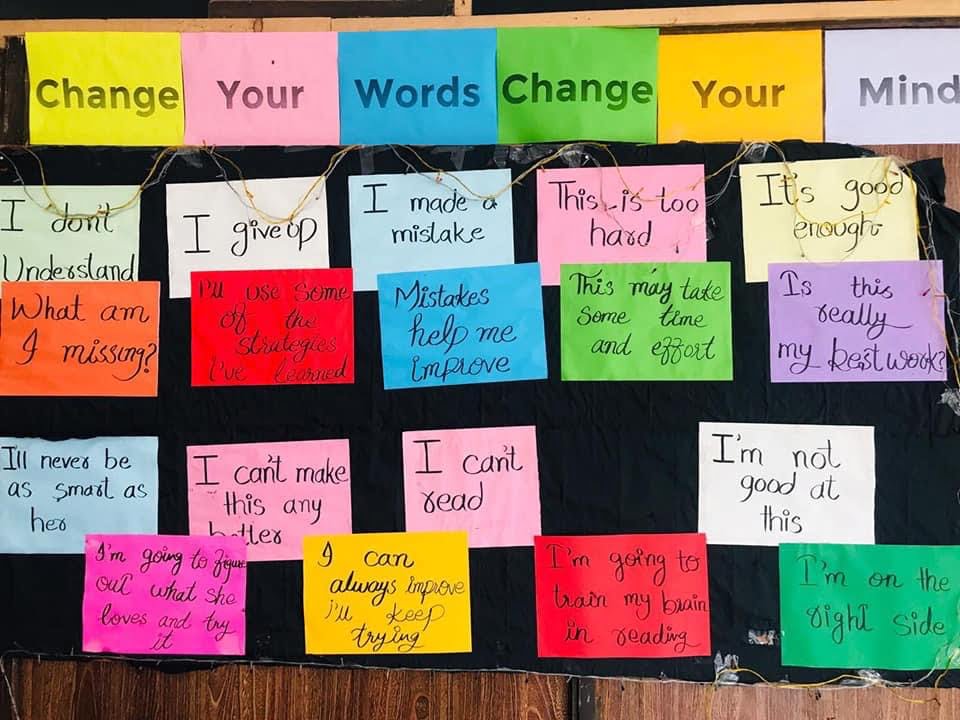 Change Your Words Change Your Mind
I don't
Understand
I give up
I made a
mistake
This is too
hard
It's good
enough
What am
I missing?
I'll use some
of the
strategies
I've learned
Mistakes
help me
improve
This may take
some time
and effort
Is this
really
my best work?
I'll never be
as smart as
her
I can't make
this any
better
I can't
read
I'm not
good at
this
I'm going to figure
out what she
loves and try
it
I can
always improve
i'll keep
trying
I'm going to
train my brain
in reading
I'm on the
right side